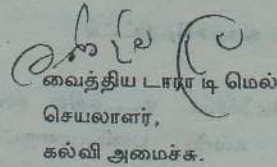 வைத்திய டாரா டி மெல்
செயலாளர்,
கல்வி அமைச்சு.